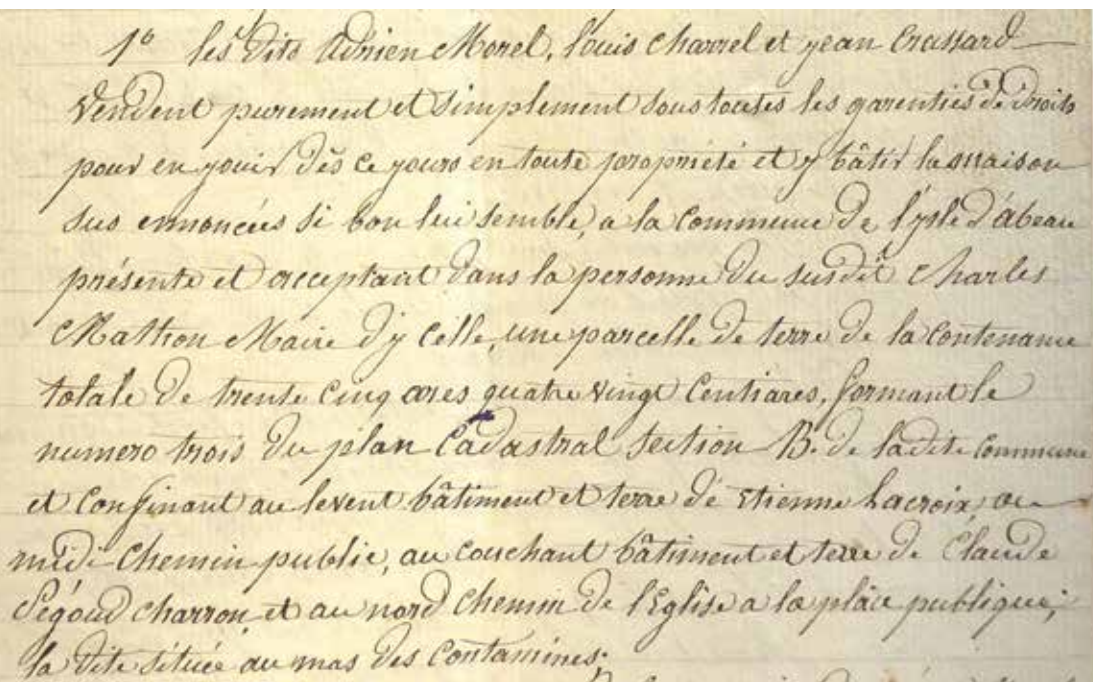 1° les dits Adrien Morel, Louis Charrel et jean Crassard
Vendent purement et Simplement sous toutes les garenties de droits
pour en jouir dès ce jours en toute propriété et y bâtir la maison
sus ennoncées si bon lui semble, a la Commune de l'ysle d'abeau
présente et acceptant dans la personne du susdit Charles
Mathon Maire d'y celle, une parcelle de terre de la Contenance
totale de trente cinq ares quatre vingt Centiares, formant le
numero trois du plan Cadastral section B. de la dite Commune
et Confinant au levent bâtiment et terre de Etienne Lacroix, au
midi Chemin public, au couchant bâtiment et terre de Claude
Ségoud charron, et au nord Chemin de l'Eglise a la plâce publique;
la dite située au mas des Contamines;